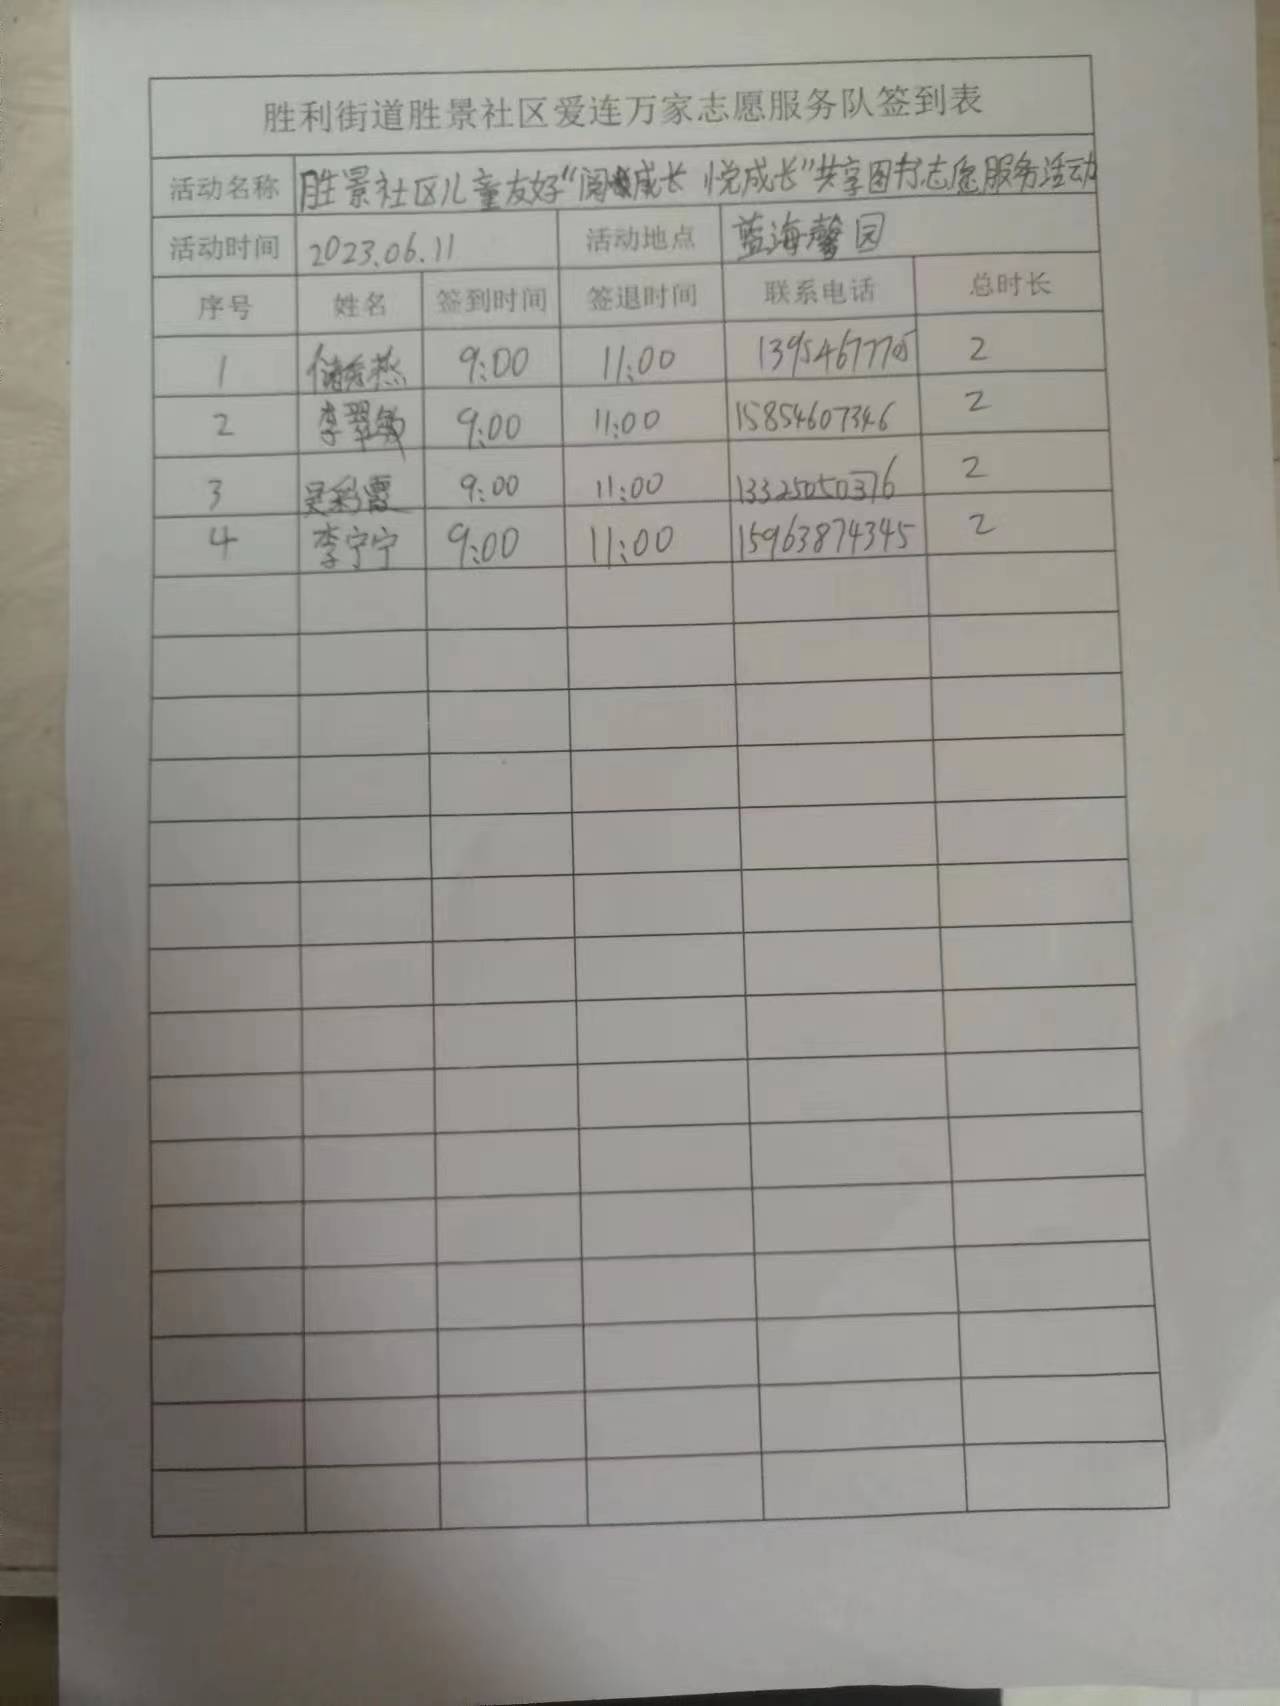 胜利街道胜景社区爱连万家志愿服务队签到表
活动名称 胜景社区儿童友好“阅成长 悦成长”共享图书志愿服务活动
活动时间 2023.06.11 活动地点 蓝海馨园
序号 姓名 签到时间 签退时间 联系电话 总时长
1 9:00 11:00 2
2 李翠敏 9:00 11:00 15854607346 2
3 吴彩霞 9:00 11:00 13325050376 2
4 李宁宁 9:00 11:00 15963874345 2